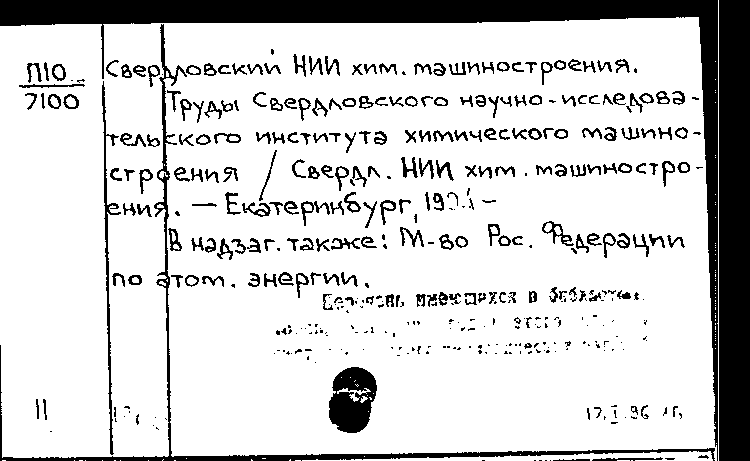 П10
7100
Свердловский НИИ хим. машиностроения.
Труды Свердловского научно-исследова-
тельского института химического машино-
строения / Свердл. НИИ хим. машиностро-
ения. — Екатеринбург,
В надзаг. также: М-во Рос. Федерации
по атом. энергии.
имеющихся в
этого
11
17.I.96